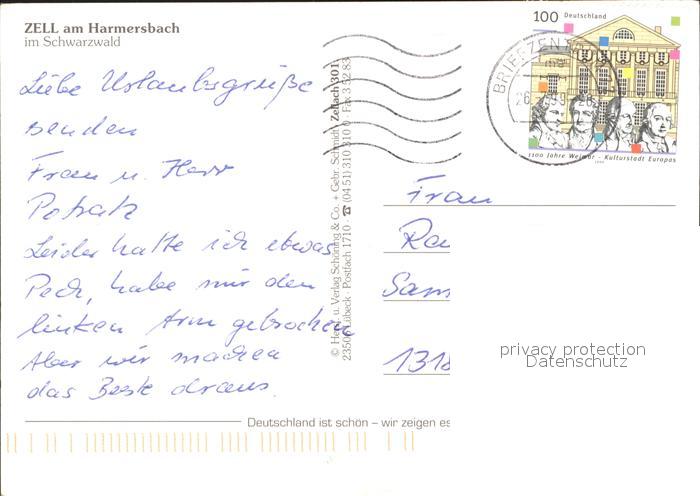 ZELL am Harmersbach
im Schwarzwald
Liebe Urlaubsgrüße
senden
Frau u. Herr
Potratz
Leider hatte ich etwas
Pech, habe mir den
linken Arm gebrochen
Aber wir machen
das Beste draus.
Deutschland ist schön – wir zeigen es
© Hand u. Verlag Schöning & Co. + Gebr. Schmidt Zellach 301
23506 Lübeck · Postfach 1710 · ☎ (04 51) 310 310 0 · Fax 3 52 83
100 Deutschland
1100 Jahre Weimar - Kulturstadt Europas
1999
BRIEFZEN
26
Frau
Ra
Sam
1318
privacy protection
Datenschutz